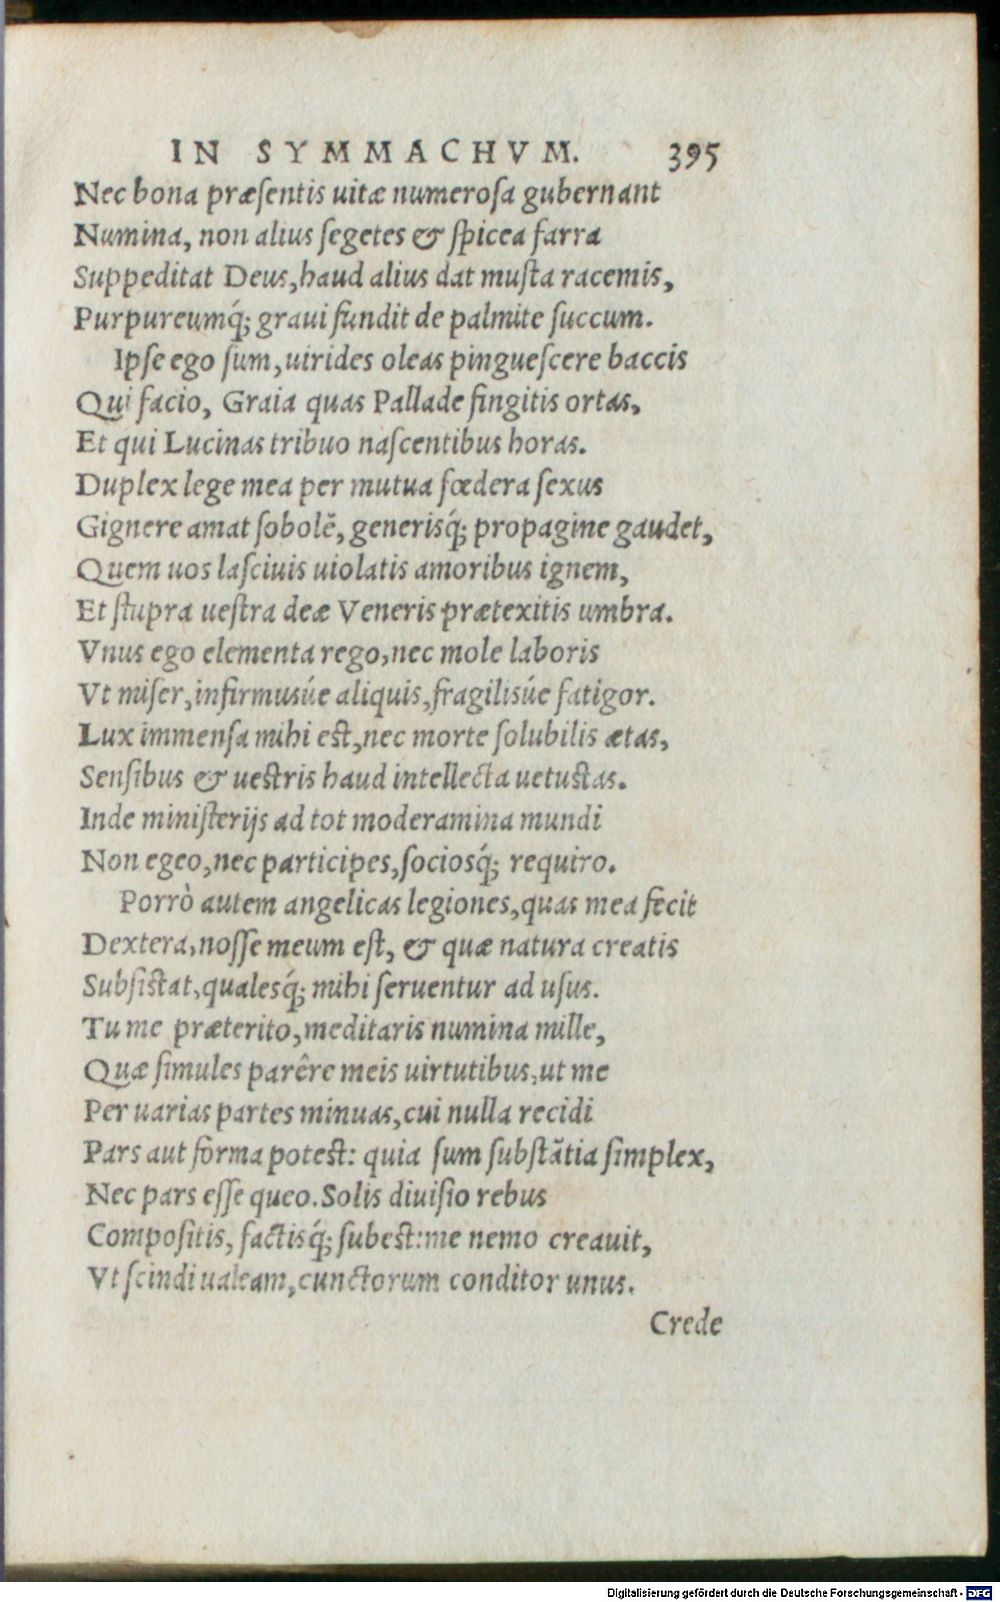 IN SYMMACHVM. 395
Nec bona præſentis uitæ numeroſa gubernant
Numina, non alius ſegetes & ſpicea farra
Suppeditat Deus, haud alius dat muſta racemis,
Purpureumq́; graui fundit de palmite ſuccum.
Ipſe ego ſum, uirides oleas pingueſcere baccis
Qui facio, Graia quas Pallade fingitis ortas,
Et qui Lucinas tribuo naſcentibus horas.
Duplex lege mea per mutua fœdera ſexus
Gignere amat ſobolē, generisq́; propagine gaudet,
Quem uos laſciuis uiolatis amoribus ignem,
Et ſtupra ueſtra deæ Veneris prætexitis umbra.
Vnus ego elementa rego, nec mole laboris
Vt miſer, infirmusúe aliquis, fragilisúe fatigor.
Lux immenſa mihi eſt, nec morte ſolubilis ætas,
Senſibus & ueſtris haud intellecta uetuſtas.
Inde miniſterijs ad tot moderamina mundi
Non egeo, nec participes, ſociosq́; requiro.
Porrò autem angelicas legiones, quas mea fecit
Dextera, noſſe meum eſt, & quæ natura creatis
Subſiſtat, qualesq́; mihi ſeruentur ad uſus.
Tu me præterito, meditaris numina mille,
Quæ ſimules parêre meis uirtutibus, ut me
Per uarias partes minuas, cui nulla recidi
Pars aut forma poteſt: quia ſum ſubſtātia ſimplex,
Nec pars eſſe queo. Solis diuiſio rebus
Compoſitis, factisq́; ſubeſt: me nemo creauit,
Vt ſcindi ualeam, cunctorum conditor unus.
Crede
Digitalisierung gefördert durch die Deutsche Forschungsgemeinschaft - DFG